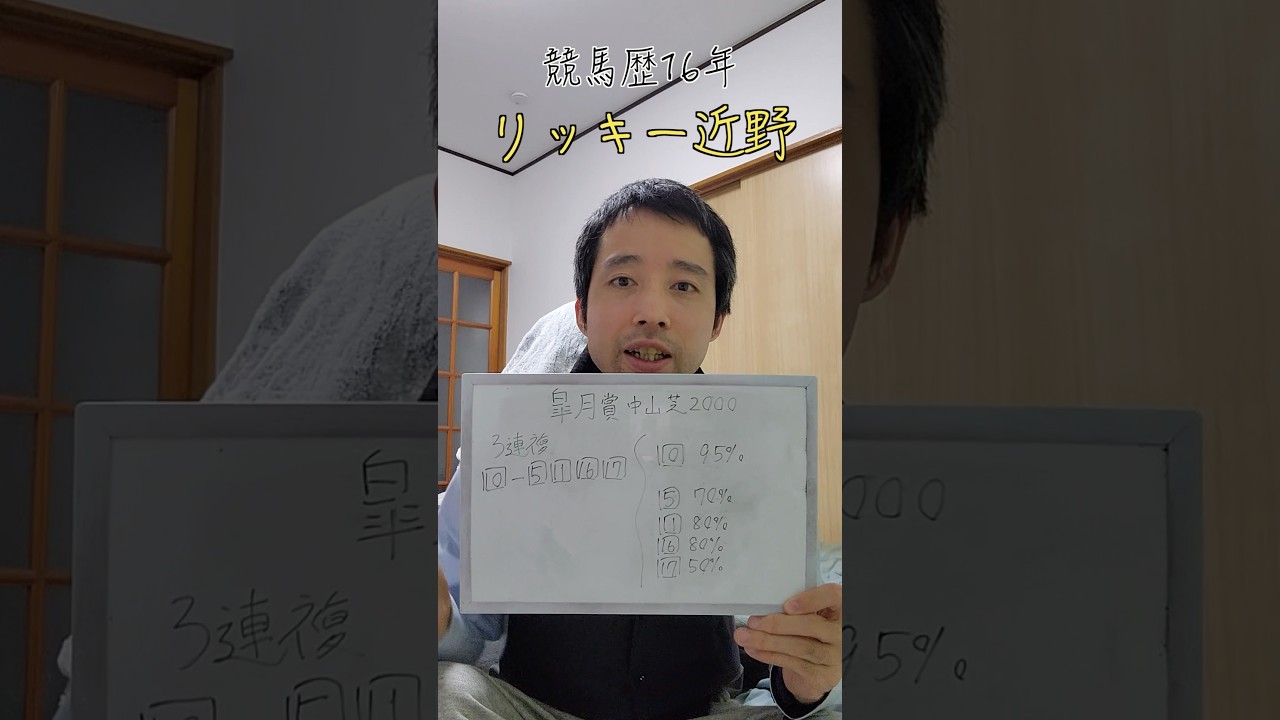 競馬歴16年
リッキー近野
皐月賞 中山芝2000
3連複
10-5 11 16 17
10 95%
5 70%
11 80%
16 80%
17 50%